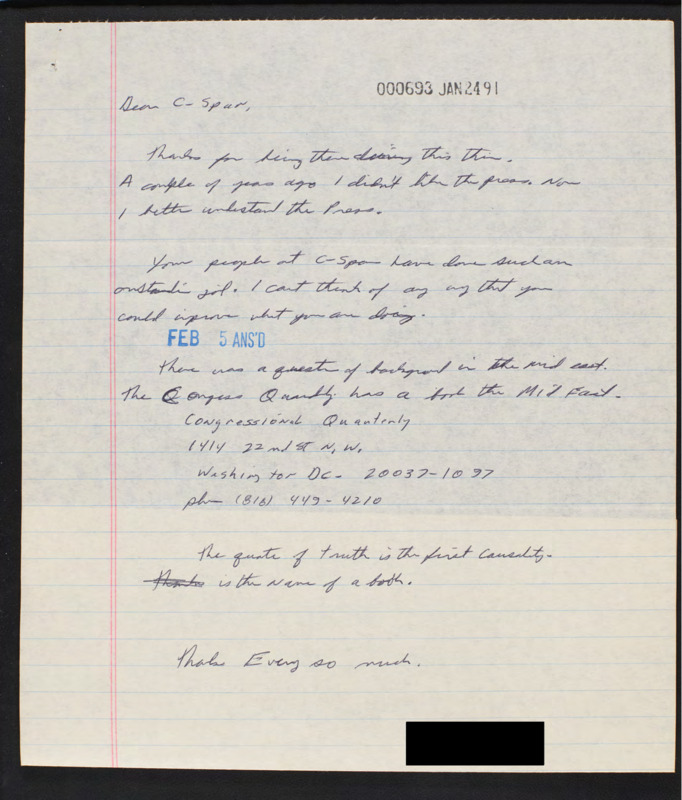 000693 JAN 24 91
Dear C-Span,
Thanks for being there during this time.
A couple of years ago I didn't like the press. Now
I better understand the Press.
Your people at C-Span have done such an
job. I can't think of any way that you
could improve what you are doing.
FEB 5 ANS'D
There was a question of background in the mid east.
The Congress Quarterly has a book the Mid East.
Congressional Quarterly
1414 22nd St N.W.
Washington DC. 20037-1097
phn (816) 449-4210
The quote of truth is the first causality.
Thanks is the Name of a book.
Thanks Every so much.